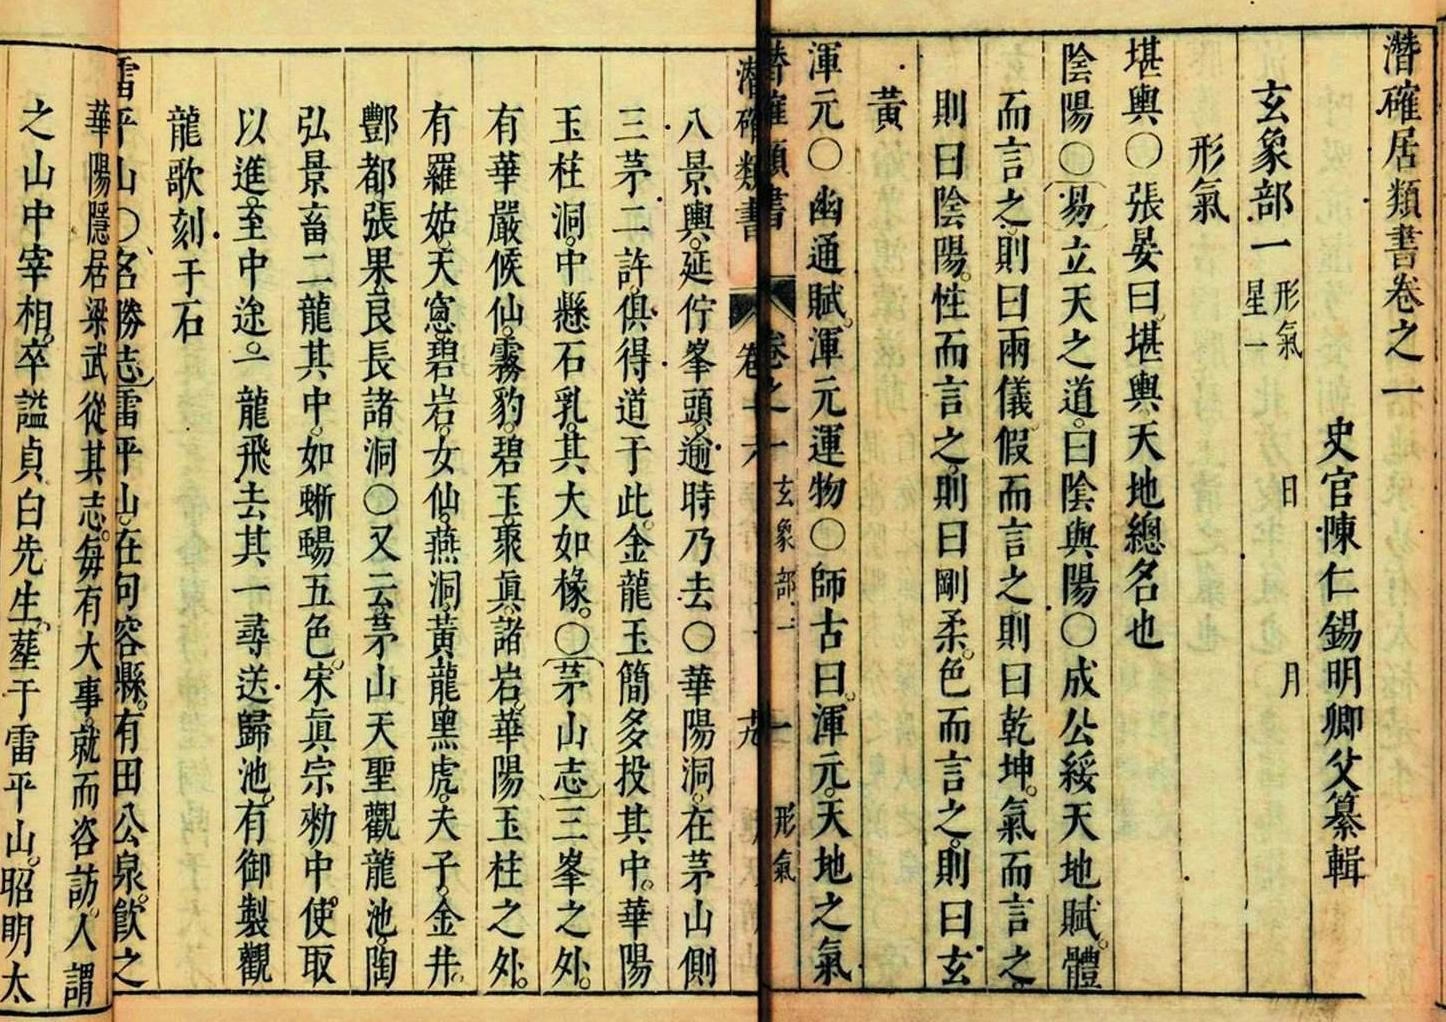 潛確居類書卷之一
史官陳仁錫明卿父纂輯
玄象部一 形氣 日 月
星一
形氣
堪輿〇張晏曰堪輿天地總名也
陰陽〇易立天之道曰陰與陽〇成公綏天地賦體
而言之則曰兩儀假而言之則曰乾坤氣而言之
則曰陰陽性而言之則曰剛柔色而言之則曰玄
黃
渾元〇幽通賦渾元運物〇師古曰渾元天地之氣
潛確類書 卷之一 玄象部一 一 形氣
潛確類書 卷十六 九
八景輿延佇峯頭逾時乃去〇華陽洞在茅山側
三茅二許俱得道于此金龍玉簡多投其中華陽
玉柱洞中懸石乳其大如椽〇茅山志三峯之外
有華嚴候仙霧豹碧玉聚眞諸岩華陽玉柱之外
有羅姑天窻碧岩女仙燕洞黃龍黑虎夫子金井
酆都張果良長諸洞〇又云茅山天聖觀龍池陶
弘景畜二龍其中如蜥蜴五色宋眞宗勑中使取
以進至中途一龍飛去其一尋送歸池有御製觀
龍歌刻于石
雷平山〇名勝志雷平山在句容縣有田公泉飮之
華陽隱居梁武從其志每有大事就而咨訪人謂
之山中宰相卒謚貞白先生塟于雷平山昭明太